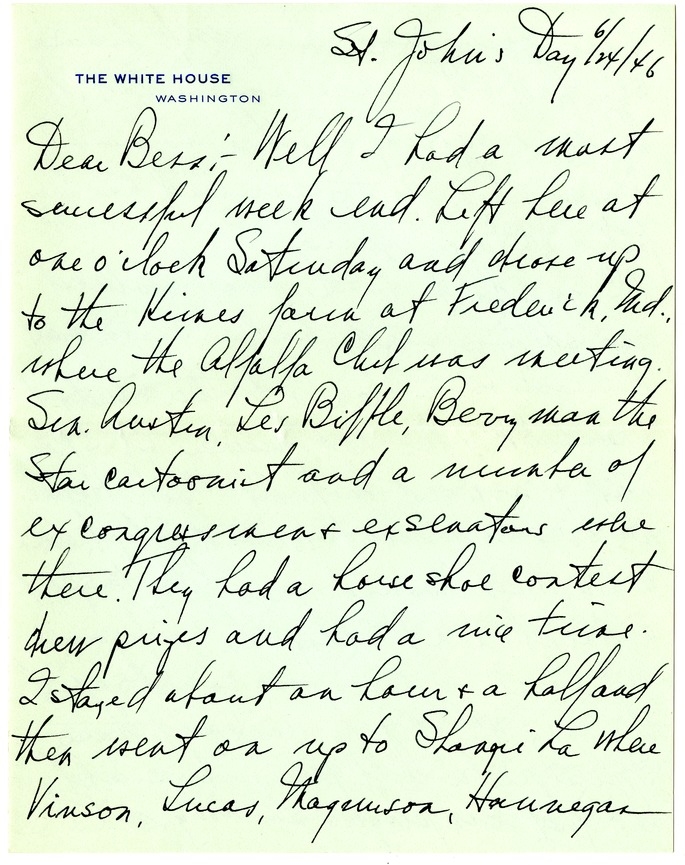 St. John's Day 6/24/46
THE WHITE HOUSE
WASHINGTON
Dear Bess:- Well I had a most
successful week end. Left here at
one o'clock Saturday and drove up
to the Himes farm at Frederick, Md.,
where the Alfalfa Club was meeting.
Sen. Austin, Les Biffle, Berryman the
Star cartoonist and a number of
ex congressmen & ex senators were
there. They had a horse shoe contest
drew prizes and had a nice time.
I stayed about an hour & a half and
then went on up to Shangri La where
Vinson, Lucas, Magnuson, Hannegan